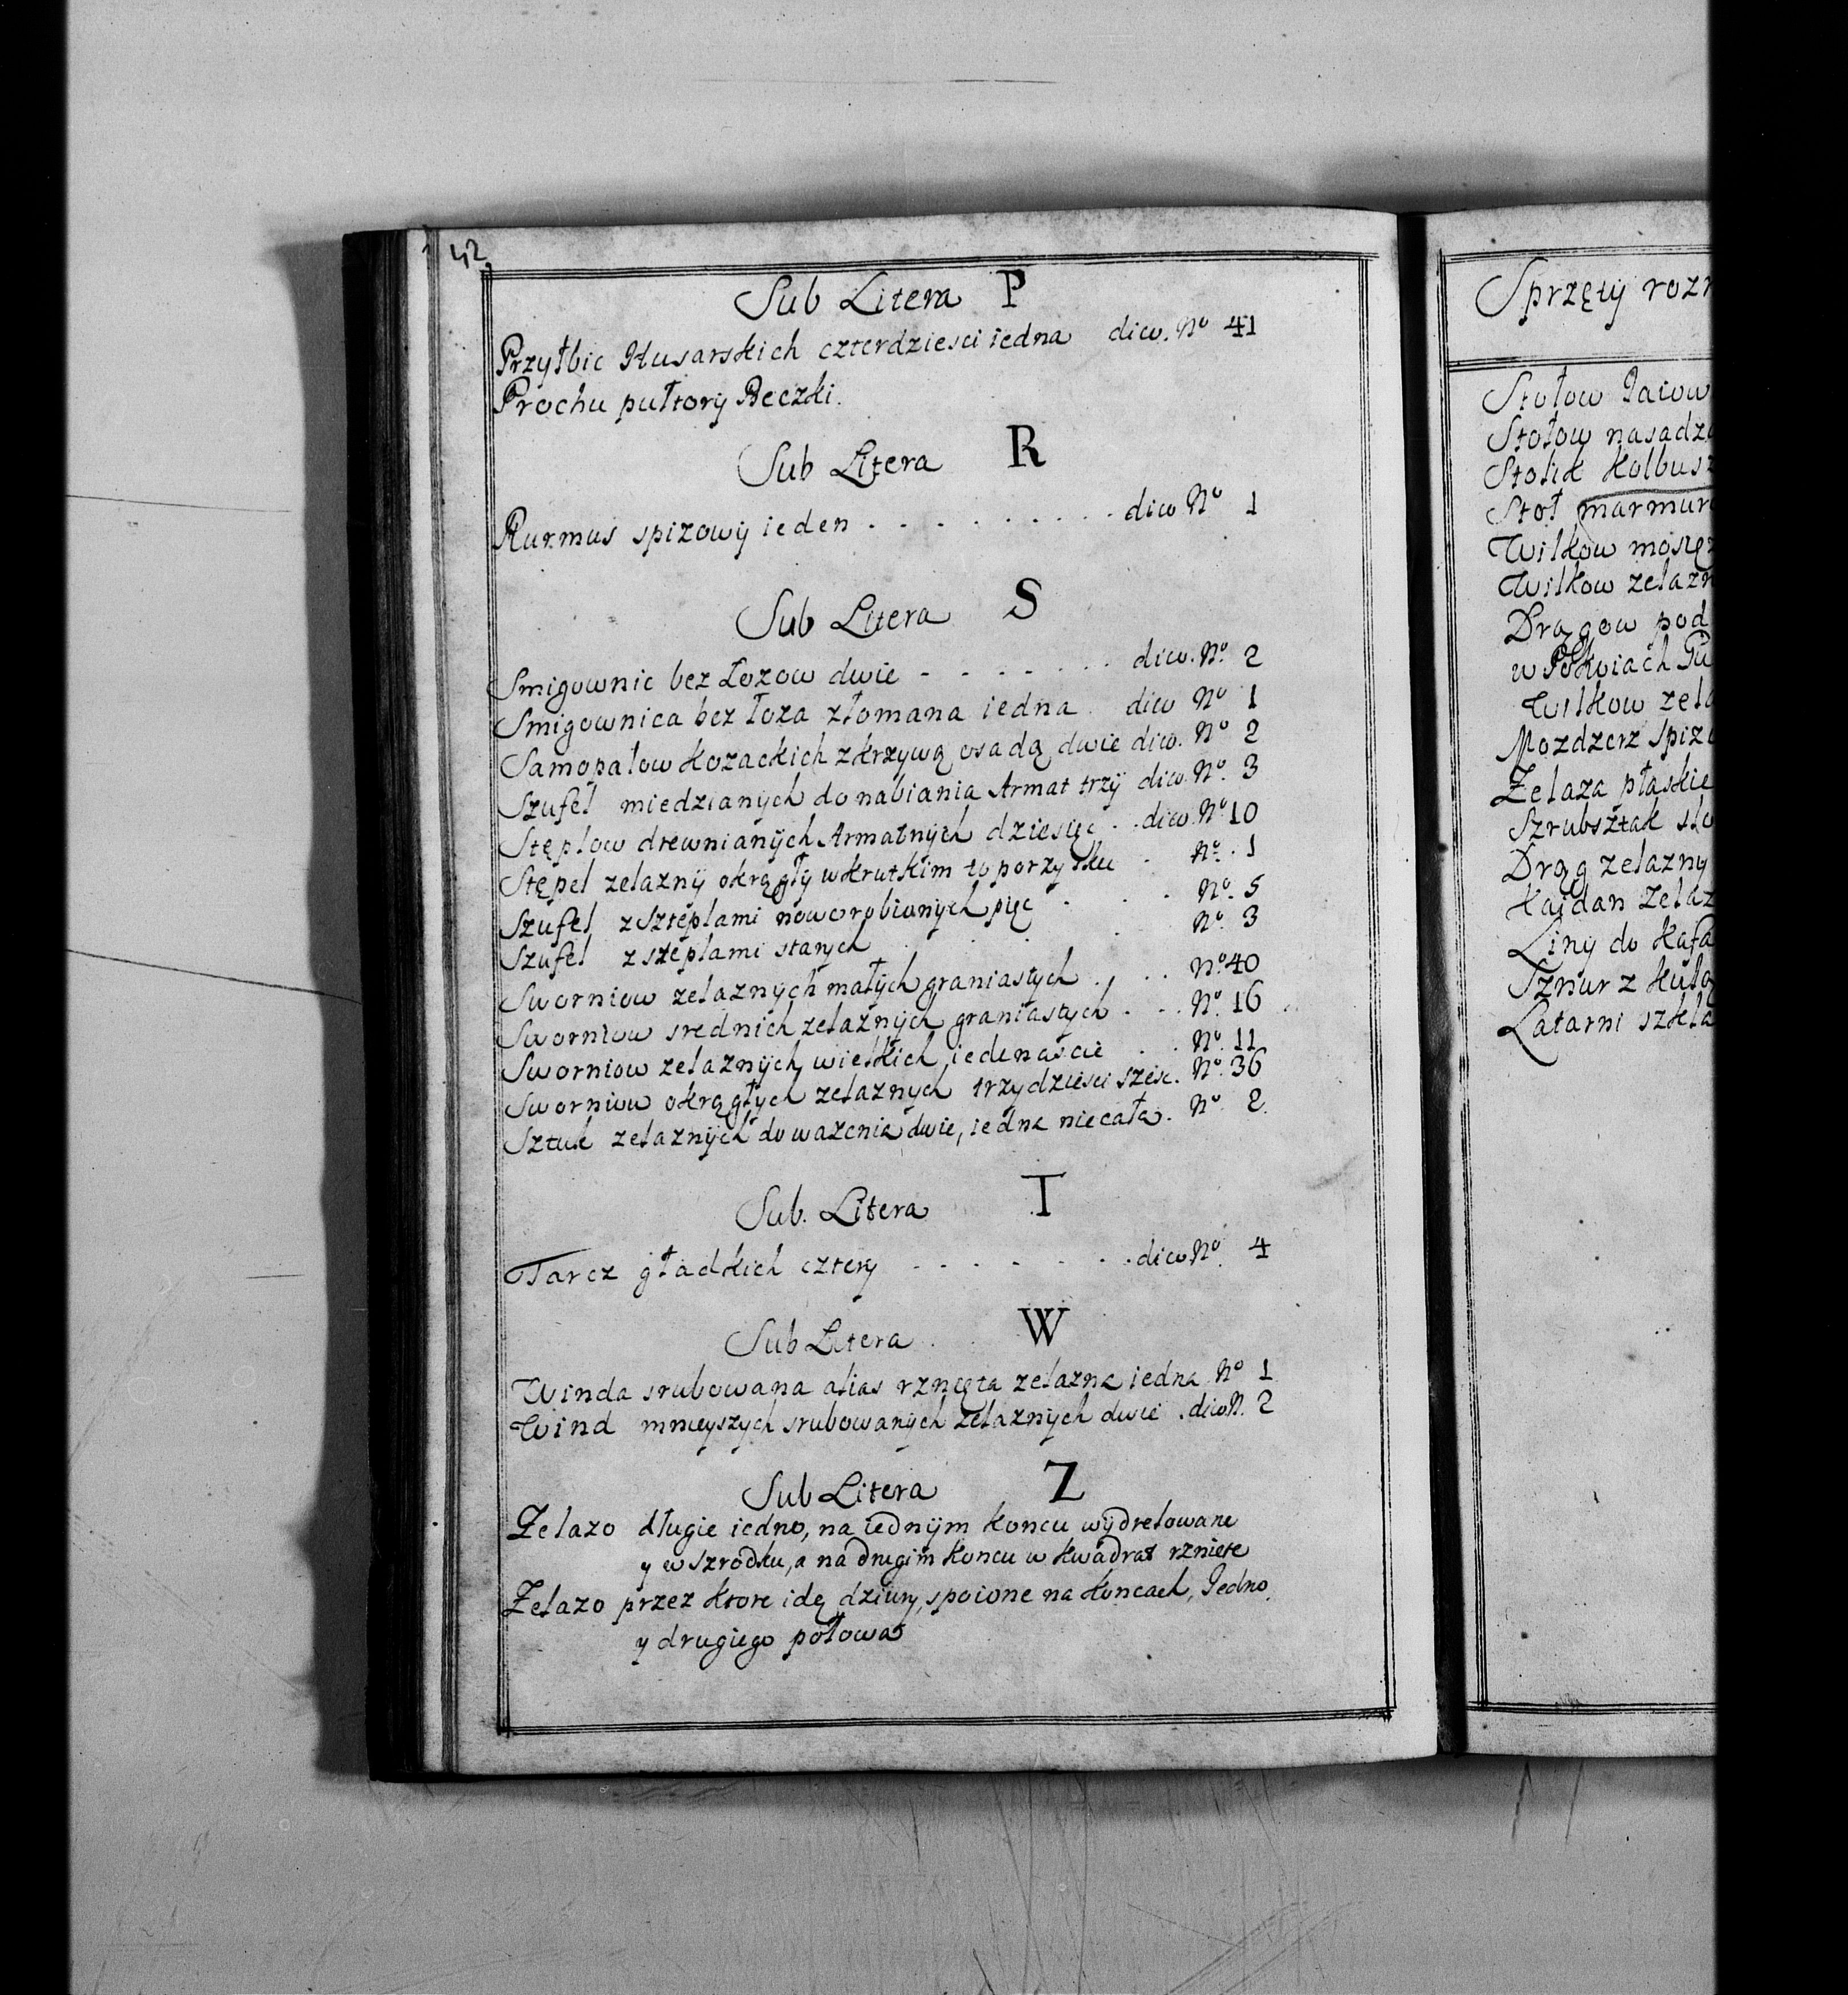 42.
Sub Litera P
Przyłbic Husarskich czterdziesci iedna dico. No 41
Prochu pułtory Beczki.
Sub Litera R
Rurmus spizowy ieden . . . . . . . . dico No 1
Sub Litera S
Smigownic bez Łozow dwie - - - - . . . dico. No. 2
Smigownica bez łoza złomana iedna . dico No 1
Samopałow Kozackich z krzywą osadą dwie dico. No 2
Szufel miedzianych do nabiania Armat trzy dico. No. 3
Stęplow drewnianych Armatnych dziesięc . . dico. No 10
Stępel zelazny okrągły w krutkim toporzysku . No. . 1
Szufel z Sztęplami noworobionych pięc . . . No. 5
Szufel z sztęplami starych . . . . . No. 3
Sworniow zelaznych małych graniastych . . . No. 40
Sworniow srednich zelaznych graniastych . . . No. 16
Sworniow zelaznych wielkich iedenascie . . No. 11
Sworniow okrągłych zelaznych trzydziesci szesc. No. 36
Sztuk zelaznych do wazenia dwie, iedna niecała. No. 2.
Sub. Litera T
Tarcz gładkich cztery . . . . . . . dico No. 4
Sub Litera W
Winda srubowana alias rznięta zelazna iedna No 1
Wind mnieyszych srubowanych zelaznych dwie . dico N. 2
Sub Litera Z
Zelazo długie iedno, na iednym koncu wydretowane
y w szrodku, a na drugim koncu w kwadrat rzniete
Zelazo przez ktore idą dziury, spoione na koncach, Jedno
y drugiego połowa
Sprzęty
Stołow
Stołow
Stolik
Stoł
Wilkow
Wilkow
Drągow pod
w
Wilkow
Mozdzerz
Zelaza płaskie
Szrubsztak
Drąg zelazny
Kaidan
Liny do
Sznur z
Latarni